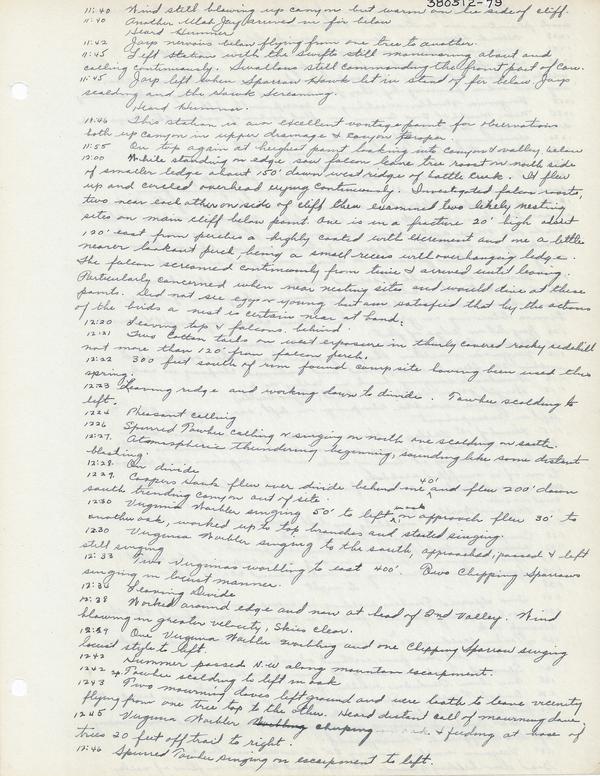 380512-79
11:40 Wind still blowing up canyon but warm on lee side of cliff.
11:40 Another Utah Jay arrived in fir below
Heard Hummer
11:42 Jays nervous below flying from one tree to another.
11:45 Left station with the swifts still maneuvering about and
calling continuously. Swallows still commanding the front part of cave.
11:45 Jays left when Sparrow Hawk lit in stand of fir below Jays
scolding and the Hawk screaming.
Heard Hummer.
11:46 This station is an excellent vantage point for observations
both up canyon in upper drainage & canyon proper.
11:55 On top again at heighest point looking into canyon & valley below
12:00 While standing on edge saw falcon leave tree roost on north side
of smaller ledge about 150' down west ridge of battle creek. It flew
up and circled overhead crying continuously. Investigated falcon roosts,
two near each other on side of cliff then examined two likely nesting
sites on main cliff below point. One is in a fracture 20' high about
120' east from perches a highly coated with excrement and one a little
nearer lookout perch being a small recess with overhanging ledge.
The falcon screamed continuously from time I arrived until leaving.
Particularly concerned when near nesting sites and would dive at these
points. Did not see eggs or young but am satisfied that by the actions
of the birds a nest is certain near at hand.
12:20 Leaving top & falcons behind.
12:21 Two Cotton tails on west exposure in thinly covered rocky sidehill
not more than 120' from falcon perch.
12:22 300 feet south of rim found campsite having been used this
spring.
12:23 Leaving ridge and working down to divide. Towhee scolding to
left.
1224 Pheasant calling
1226 Spurred Towhee calling & singing on north one scolding on south.
12:27. Atmospheric thundering beginning, sounding like some distant
blasting.
12:28 On divide
1229. Coopers Hawk flew over divide behind me 40' and flew 200' down
south trending canyon out of site.
1230 Virginia Warbler singing 50' to left in oak on approach flew 30' to
another oak, worked up to top branches and started singing.
1230 Virginia Warbler singing to the south, approached, passed & left
still singing
12:33 Two Virginias warbling to east 400'. Two Chipping Sparrows
singing in locust manner.
12:36 Leaving Divide
12:38 Worked around edge and now at head of 2nd Valley. Wind
blowing in greater velocity, Skies clear.
12:39 One Virginia Warbler warbling and one Chipping Sparrow singing
locust style to left.
1242 Hummer passed N.W along mountain escarpment.
1242 sp. Towhee scolding to left in oak
1243 Two mourning doves left ground and were loath to leave vicinity
flying from one tree top to the other. Heard distant call of mourning dove.
1245 Virginia Warbler & feeding at base of
trees 20 feet off trail to right.
12:46 Spurred Towhee singing on escarpment to left.